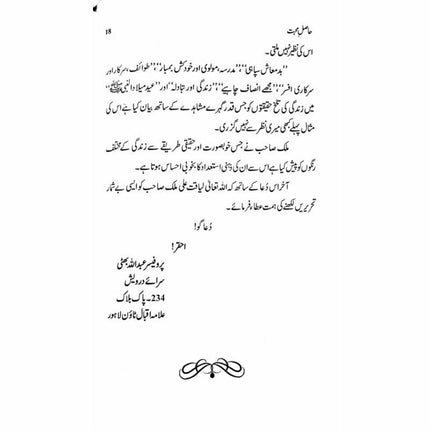 حاصلِ محبت 18
اس کی نظیر نہیں ملتی۔
’’بدمعاش سپاہی‘‘، ’’مدرسہ، مولوی اور خودکش بمبار‘‘، ’’طوائف، سرکار اور
سرکاری افسر‘‘، ’’مجھے انصاف چاہیے‘‘، ’’زندگی اور تبادلہ‘‘ اور ’’عید میلاد النبی ﷺ‘‘
میں زندگی کی تلخ حقیقتوں کو جس قدر گہرے مشاہدے کے ساتھ بیان کیا ہے اس کی
مثال پہلے کبھی میری نظر سے نہیں گزری۔
ملک صاحب نے جس خوبصورت اور حقیقی طریقے سے زندگی کے مختلف
رنگوں کو پیش کیا ہے اس سے ان کی ذہنی استعداد کا بخوبی احساس ہوتا ہے۔
آخر اس دُعا کے ساتھ کہ اللہ تعالیٰ لیاقت علی ملک صاحب کو ایسی بے شمار
تحریریں لکھنے کی ہمت عطاء فرمائے۔
دُعا گو!
احقر!
پروفیسر عبداللہ بھٹی
سرائے درویش
234۔ پاک بلاک
علامہ اقبال ٹاؤن لاہور